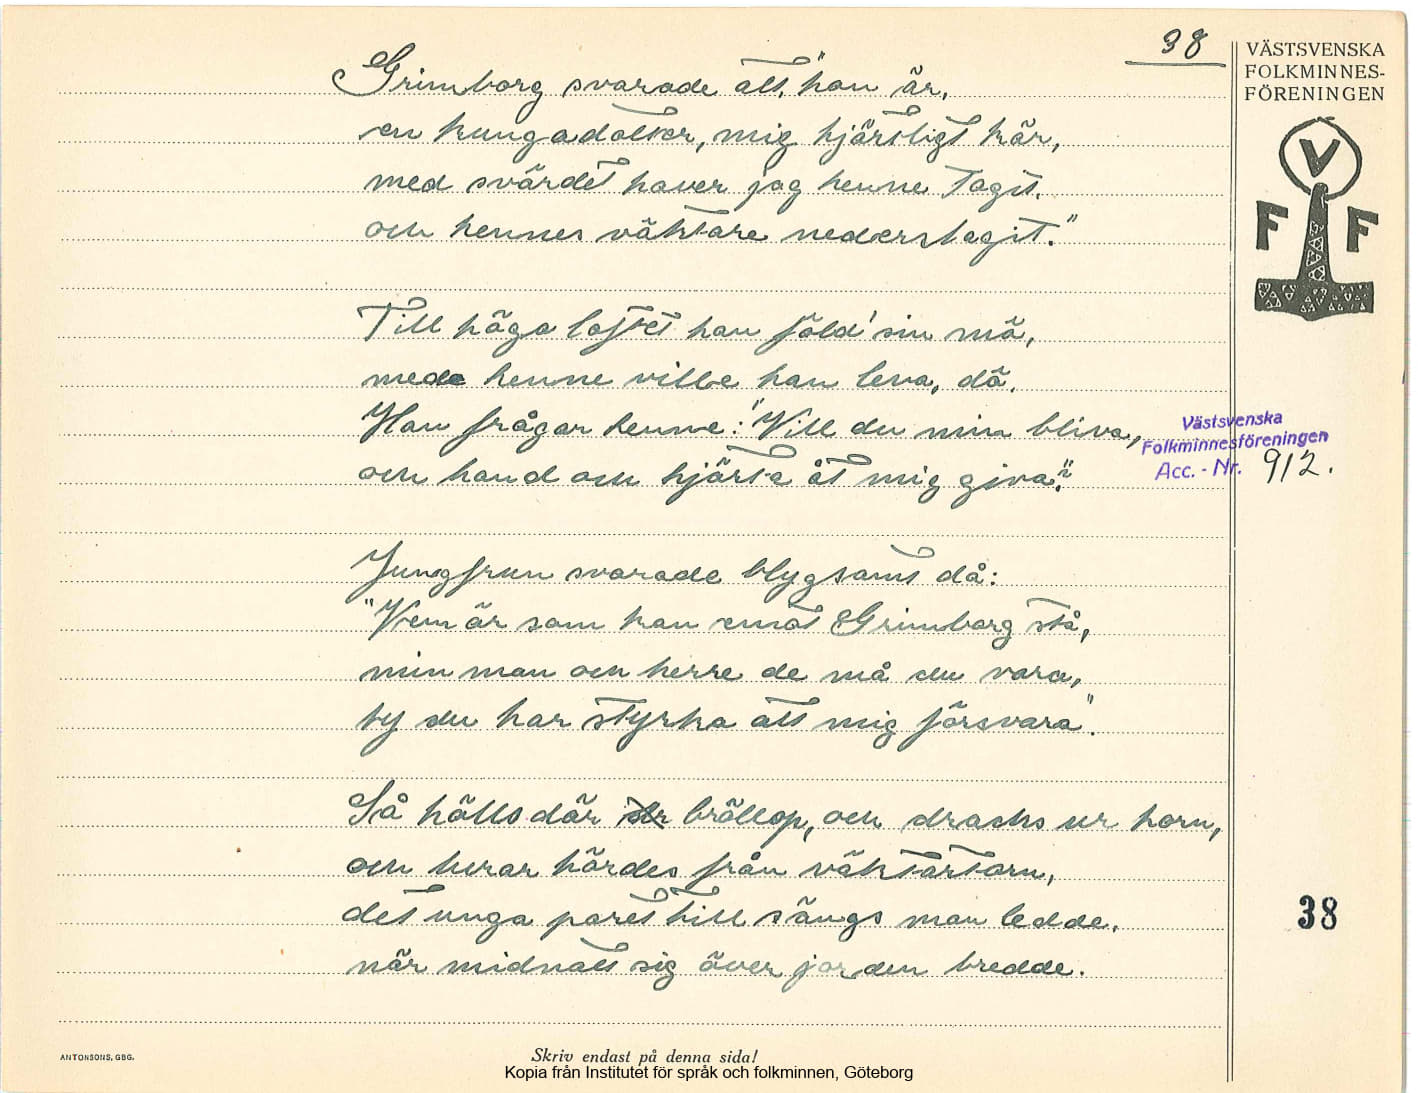 38
VÄSTSVENSKA
FOLKMINNES-
FÖRENINGEN
V
F F
Grimborg svarade att "hon är,
en kungadotter, mig hjärtligt kär,
med svärdet haver jag henne tagit,
och hennes väktare nederslagit."
Till höga loftet han föld' sin mö,
mede henne ville han leva, dö.
Han frågar henne: "Vill du min bliva,
och hand och hjärta åt mig giva?"
Västsvenska
Folkminnesföreningen
Acc. - Nr. 912.
Jungfrun svarade blygsamt då:
"Vem är som kan emot Grimborg stå,
min man och herre de må du vara,
ty du har styrka att mig försvara".
Så hölls där bröllop, och dracks ur horn,
och lurar hördes från väktartorn,
det unga paret till sängs man ledde,
när midnatt sig över jorden bredde.
38
ANTONSONS, GBG.
Skriv endast på denna sida!
Kopia från Institutet för språk och folkminnen, Göteborg